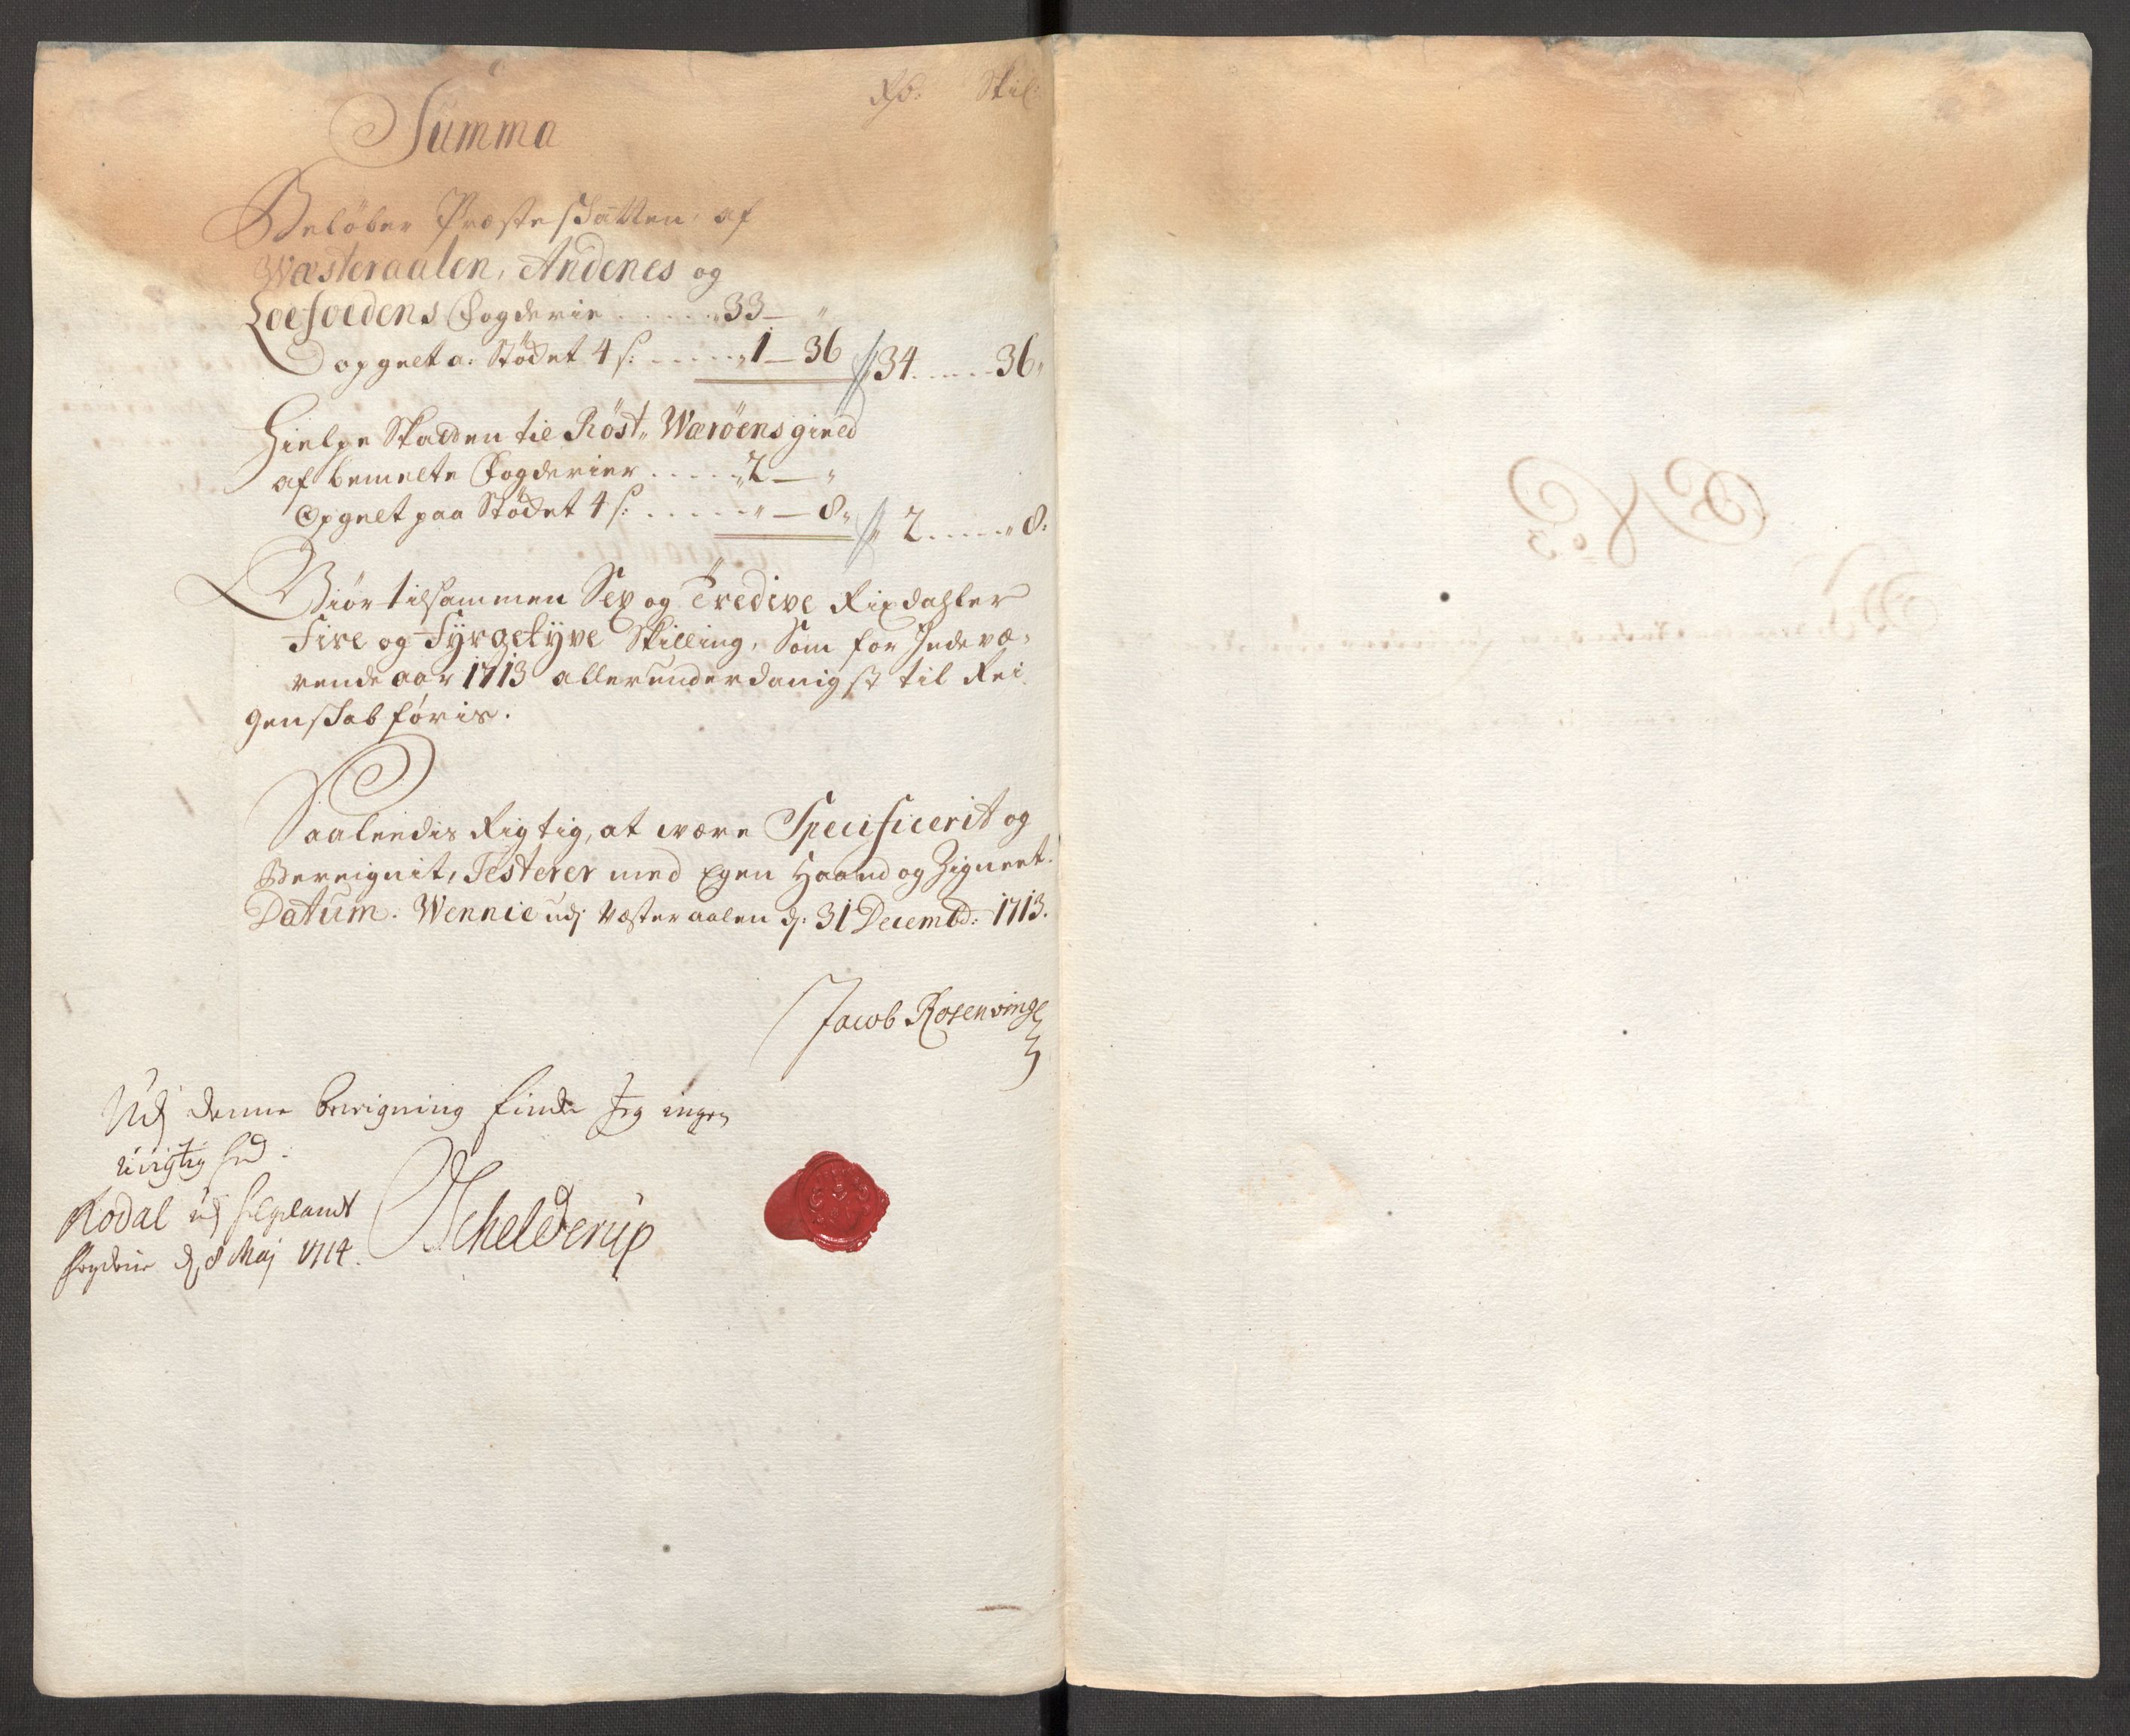 Rd: Skil:
Summa
Beløber Præste skatten, af
Wæsteraalen, Andenes og
Loefoedens Fogderie ..... 33 — "
opgelt a. Stødet 4 s: ..... 1 — 36 34 ..... 36"
Hielpe Skatten til Röst, Wæröens gield
af bemelte Fogderier ..... 2 — "
Opgelt paa Stødet 4 s: ..... " — 8" 2 ..... 8:
Giör tilsammen Sex og Tredive Rixdahler
Fire og Fyrgetyve Skilling, Som for Indevæ-
rende aar 1713 allerunderdanigst til Rei
genskab føris.
Saaledis Rigtig, at være Specificerit og
Bereignit, Testerer med Egen Haand og Zignet.
Datum. Wennie udj Væsteraalen d: 31 Decembd: 1713.
Jacob Rosenvinge
Udj denne beregning finder Jeg ingen
urigtighed.
Rodal udj Helgelandt
fogderie dj 8 Maj 1714. Schelderup